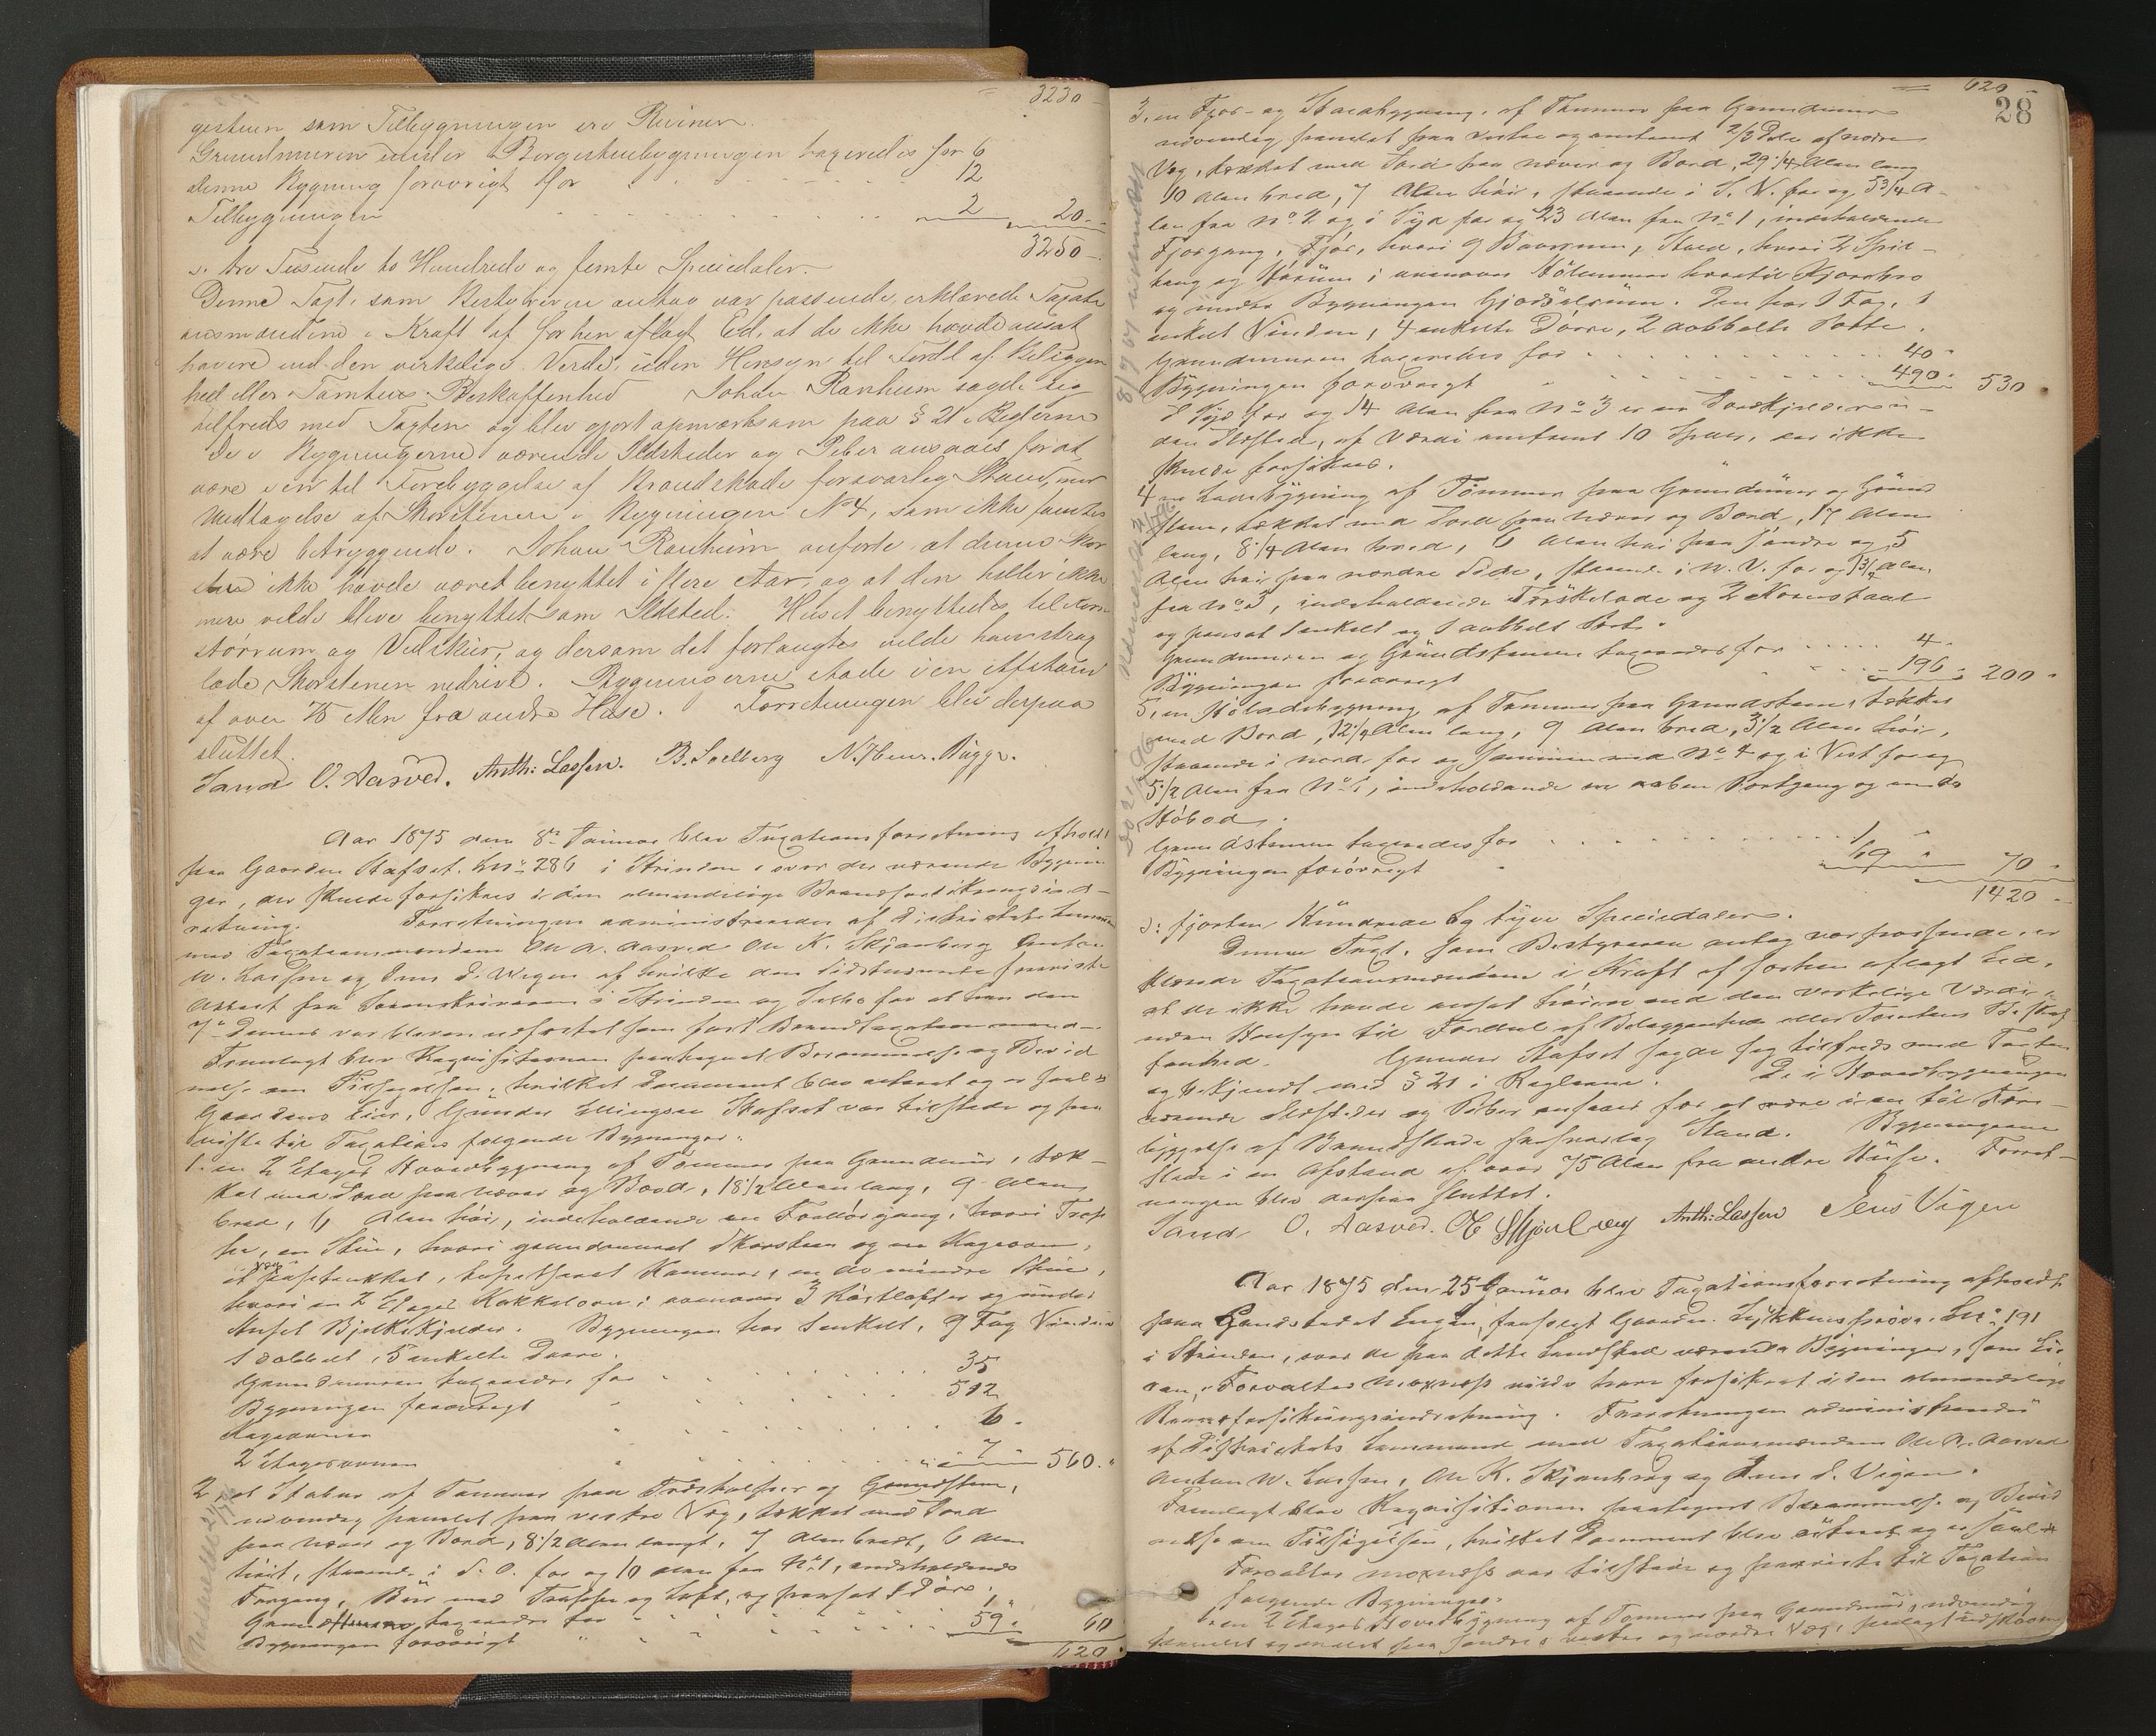 3230
gestuen som Tilbygningen ere Ruiner.
Grundmuren under Borgestuebygningen taxeredes for 6
denne Bygning forøvrigt for 12
Tilbygningen 2 20
3250
tre Tusende to Hundrede og femti Speciedaler.
Denne Taxt, som Bestyreren antog var passende, erklærede Taxati
onsmændene i Kraft af forhen aflagt Ed, at de ikke havde ansat
høiere end den virkelige Værdi, uden Hensyn til Fordel af Beliggen
hed eller Tomtens Beskaffenhed Johan Ranheim sagde sig
tilfreds med Taxten og blev gjort opmærksom paa § 21 i Reglerne
De i Bygningerne værende Ildsteder og Piber ansaaes for at
være i en til Forebyggelse af Brandskade forsvarlig Stand, med
Undtagelse af Skorstenen i Bygningen No 4, som ikke fandtes
at være betryggende. Johan Ranheim anførte at denne Skor
sten ikke havde været benyttet i flere Aar, og at den heller ikke
mere vilde blive benyttet som Ildsted. Huset benyttedes til Korn
størrum og Vedskur, og dersom det forlangtes vilde han strax
lade Skorstenen nedrive. Bygningerne stode i en Afstand
af over 75 Alen fra andre Huse. Forretningen blev derpaa
sluttet.
Sand O. Aasved. Anth: Lassen. B. Solberg N. Henr. Bügge.
Aar 1875 den 8de Januar blev Taxationsforretning afholdt
paa Gaarden Stafset Lno 286 i Strinden over der værende Bygnin
ger, der skulde forsikres i den almindelige Brandforsikringsind-
retning. Forretningen administreredes af Distriktets Lensmand
med Taxationsmændene Ole A. Aasved Ole K. Skjønberg Anton
W. Lassen og Jens J. Wigen af hvilke den sidstnævnte foreviste
Attest fra Sorenskriveren i Strinden og Selbo for at han den
7de Dennes var bleven edfæstet som fast Brandtaxationsmand.
Fremlagt blev Requisitionen paategnet Berammelse og Bevid
nelse om Tilsigelsen, hvilket Document blev oplæst og er saal:
Gaardens Eier, Gunder Ellingsen Stafset var tilstede og paa
viste til Taxation følgende Bygninger:
1. en 2 Etages Hovedbygning af Tømmer paa Grundmur, tæk-
ket med Torv paa Næver og Bord, 18 1/2 Alen lang, 9 Alen
bred, 6 Alen høi, indeholdende en Forstugang, hvori Trap
per, en Stue, hvori grundmuret Skorsteen og en Kageovn,
et tapetseret Kammer, en do mindre Stue,
hvori en 2 Etages Kakkelovn; ovenover 3 Kistlofter og under
Huset Bjelkekjelder. Bygningen har 1 enkelt, 9 Fag Vinduer
1 dobbelt, 5 enkelte Døre.
Grundmuren taxeredes for 35
Bygningen forøvrigt 512
Kageovnen 6
2 Etagesovnen 7 560
2 et Stabur af Tømmer paa Træstolper og Grundsteen,
udvendig panelet paa vestre Væg, tækket med Torv
paa Næver og Bord, 8 1/2 Alen langt, 7 Alen bredt, 6 Alen
høit, staaende i S. O. for og 10 Alen fra No 1, indeholdende
Forgang, Bur med Trapper og Loft, og forøvrigt 1 Dør.
Grundstenene taxeredes for 1
Bygningen forøvrigt 59 60
620
620
28
3, en Fjøs- og Staldbygning af Tømmer paa Grundmur
udvendig panelet paa vestre og omtrent 2/3 Dele af nordre
Væg, tækket med Torv paa Næver og Bord, 29 1/4 Alen lang
10 Alen bred, 7 Alen høi, staaende i S. V. for og 5 3/4 A-
len fra No 2 og i Syd for og 23 Alen fra No 1, indeholdende
Fjøsgang, Fjøs, hvori 9 Baasrum, Stald, hvori 2 Spil-
toug og Hørum; ovenover Hølemmer hvortil Kjørebro
og under Bygningen Gjødselrum. Den har 1 Fag, 1
enkelt Vindue, 4 enkelte Døre, 2 dobbelte Porte.
Grundmuren taxeredes for 40
Bygningen forøvrigt 490 530
I Syd for og 14 Alen fra No 3 er en Jordkjelder u-
den Ildsted, af Værdi omtrent 10 Spdlr, der ikke
skulde forsikres.
4 en Ladebygning af Tømmer paa Grundmur og Grund
stene, tækket med Torv paa Næver og Bord, 17 Alen
lang, 8 1/4 Alen bred, 6 Alen høi paa søndre og 5
Alen høi paa nordre Side, staaende i N. V. for og 13 1/2 Alen
fra No 3, indeholdende Tærskelade og 2 Kornstaal
og forøvrigt 1 enkelt og 1 dobbelt Port.
Grundmuren og Grundstenene taxeredes for 4
Bygningen forøvrigt 196 200
5, en Høladebygning af Tømmer paa Grundstene, tækket
med Bord, 12 1/4 Alen lang, 9 Alen bred, 3 1/2 Alen høi,
staaende i nord for og sammen med No 4 og i Vest for og
5 1/2 Alen fra No 1, indeholdende en aaben Portgang og en do
Høbod.
Grundstenene taxeredes for 1
Bygningen forøvrigt 69 70
1420
fjorten Hundrede og tyve Speciedaler.
Denne Taxt, som Bestyreren antog var passende, er
klærede Taxationsmændene i Kraft af forhen aflagt Ed,
at de ikke havde ansat høiere end den virkelige Værdi,
uden Hensyn til Fordel af Beliggenhed eller Tomtens Beskaf
fenhed. Gunder Stafset sagde sig tilfreds med Taxten
og bekjendt med § 21 i Reglerne. De i Hovedbygningen
værende Ildsteder og Piber ansaaes for at være i en til Fore-
byggelse af Brandskade forsvarlig Stand. Bygningerne
stode i en Afstand af over 75 Alen fra andre Huse. Forret-
ningen blev derpaa sluttet.
Sand O. Aasved. O K Skjønberg Anth: Lassen Jens Vigen
Aar 1875 den 25 Januar blev Taxationsforretning afholdt
paa Landstedet Engen, fraskilt Gaarden Lykkensprøve, Lno 191
i Strinden, over de paa dette Landsted værende Bygninger, som Ei-
eren, Forvalter Moxness vilde have forsikret i den almindelige
Brandforsikringsindretning. Forretningen administreredes
af Distriktets Lensmand med Taxationsmændene Ole A. Aasved
Anton W. Lassen, Ole K. Skjønberg og Jens J. Vigen.
Fremlagt blev Requisitionen paategnet Berammelse og Bevid
nelse om Tilsigelsen, hvilket Document blev oplæst og er saal:
Forvalter Moxness var tilstede og paaviste til Taxation
følgende Bygninger:
en 2 Etages Hovedbygning af Tømmer paa Grundmur, udvendig
panelet og malet paa søndre, vestre og nordre Væg,